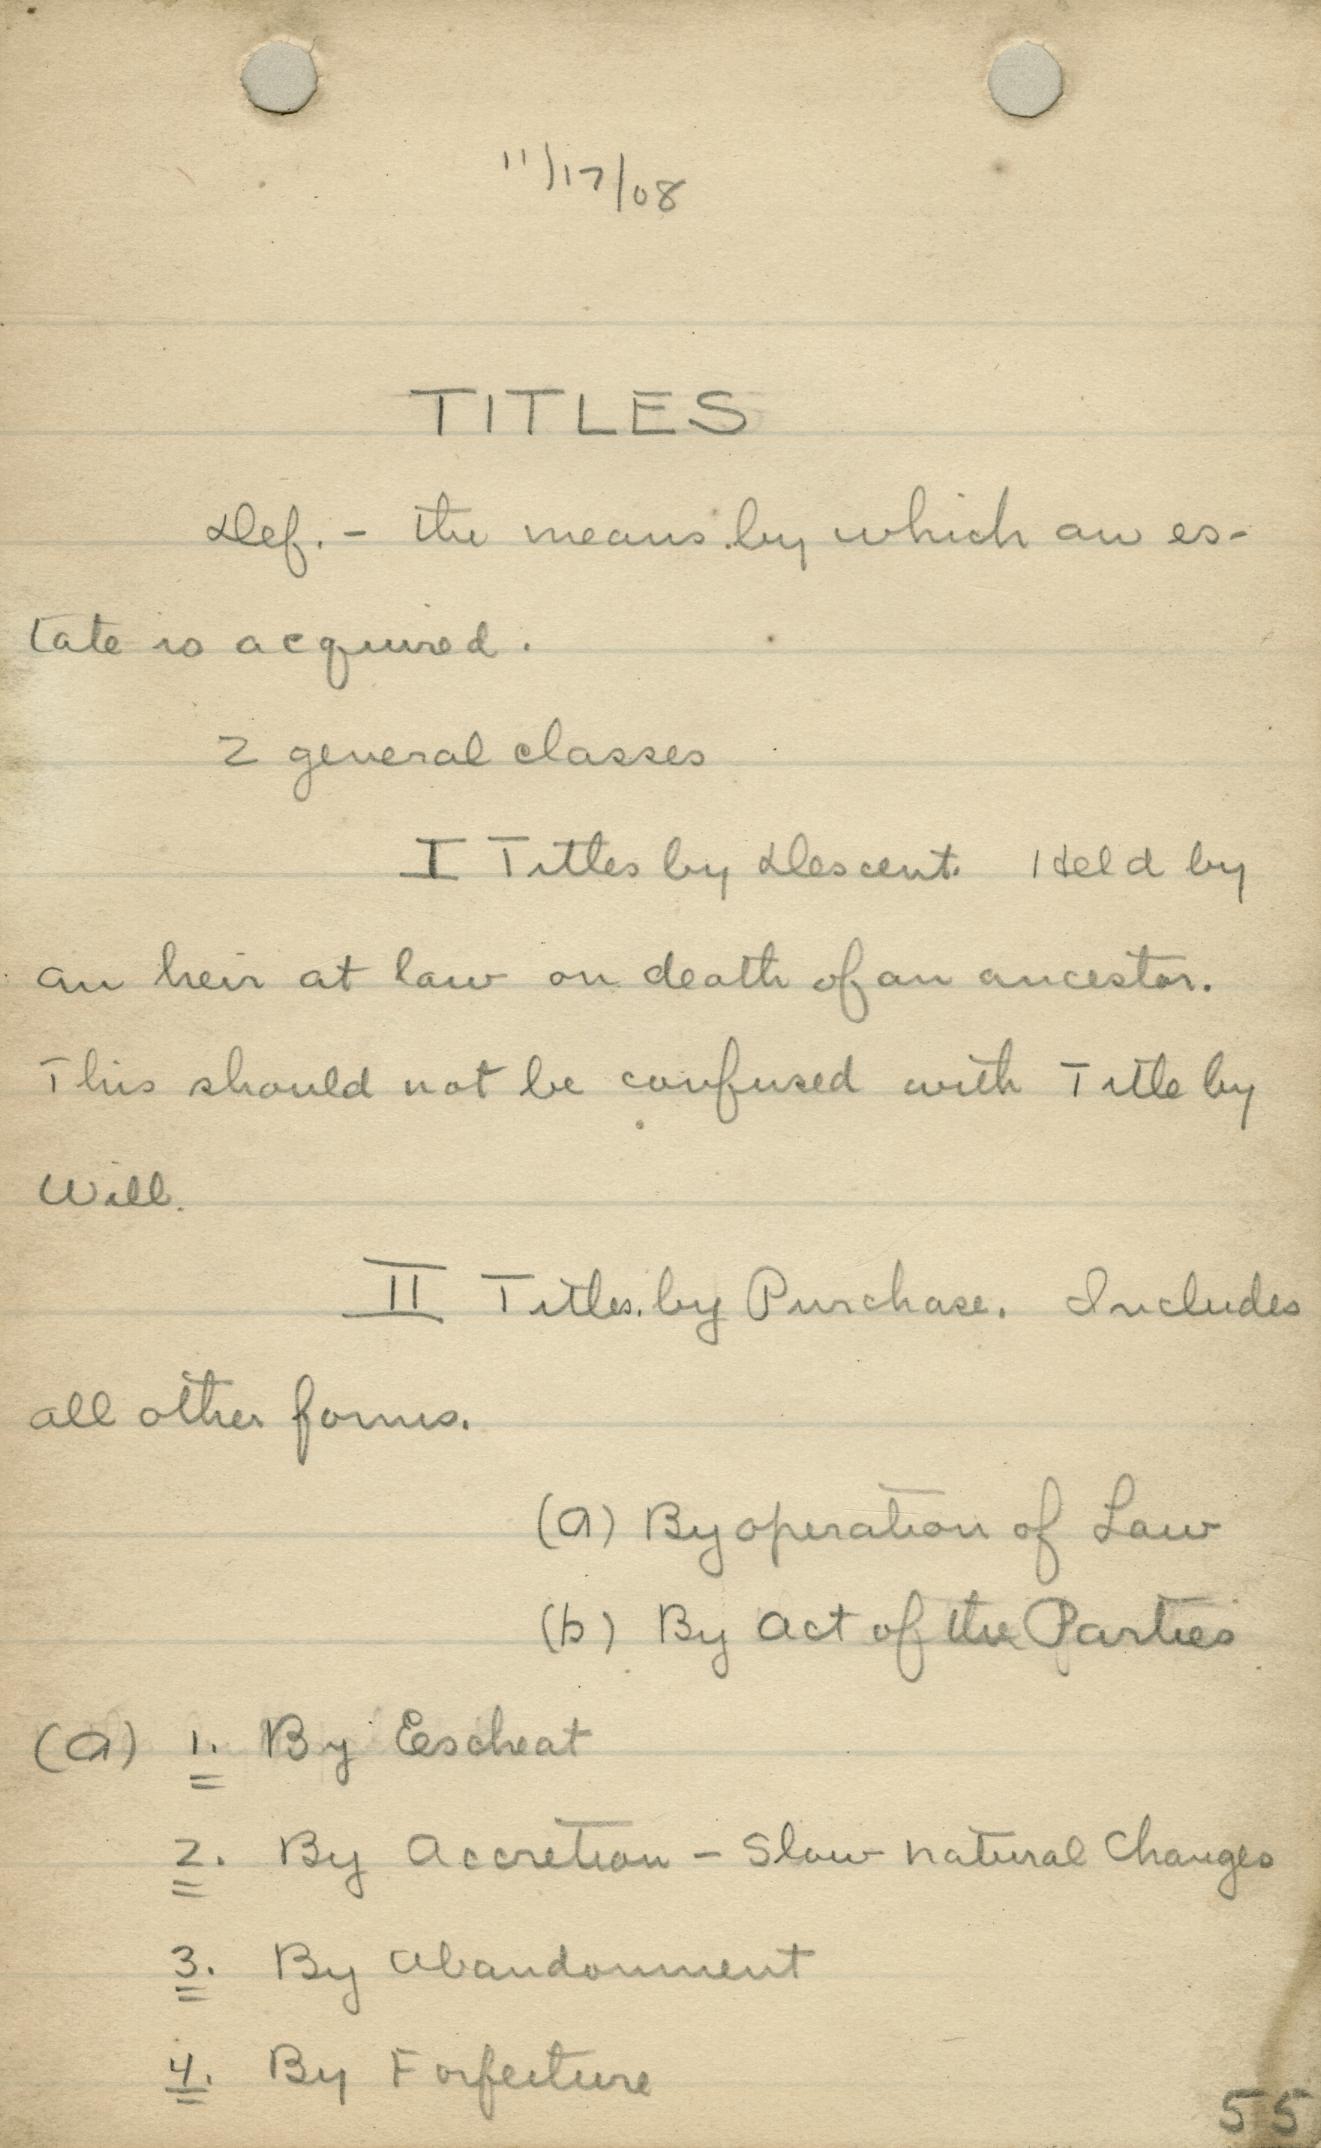 11/17/08
TITLES
Def. - the means by which an es-
tate is acquired.
2 general classes
I Titles by Descent. Held by
an heir at law on death of an ancestor.
This should not be confused with Title by
Will.
II Titles by Purchase. Includes
all other forms.
(a) By operation of Law
(b) By Act of the Parties
(a) 1. By Escheat
2. By Accretion - Slow natural Changes
3. By Abandonment
4. By Forfeiture
55